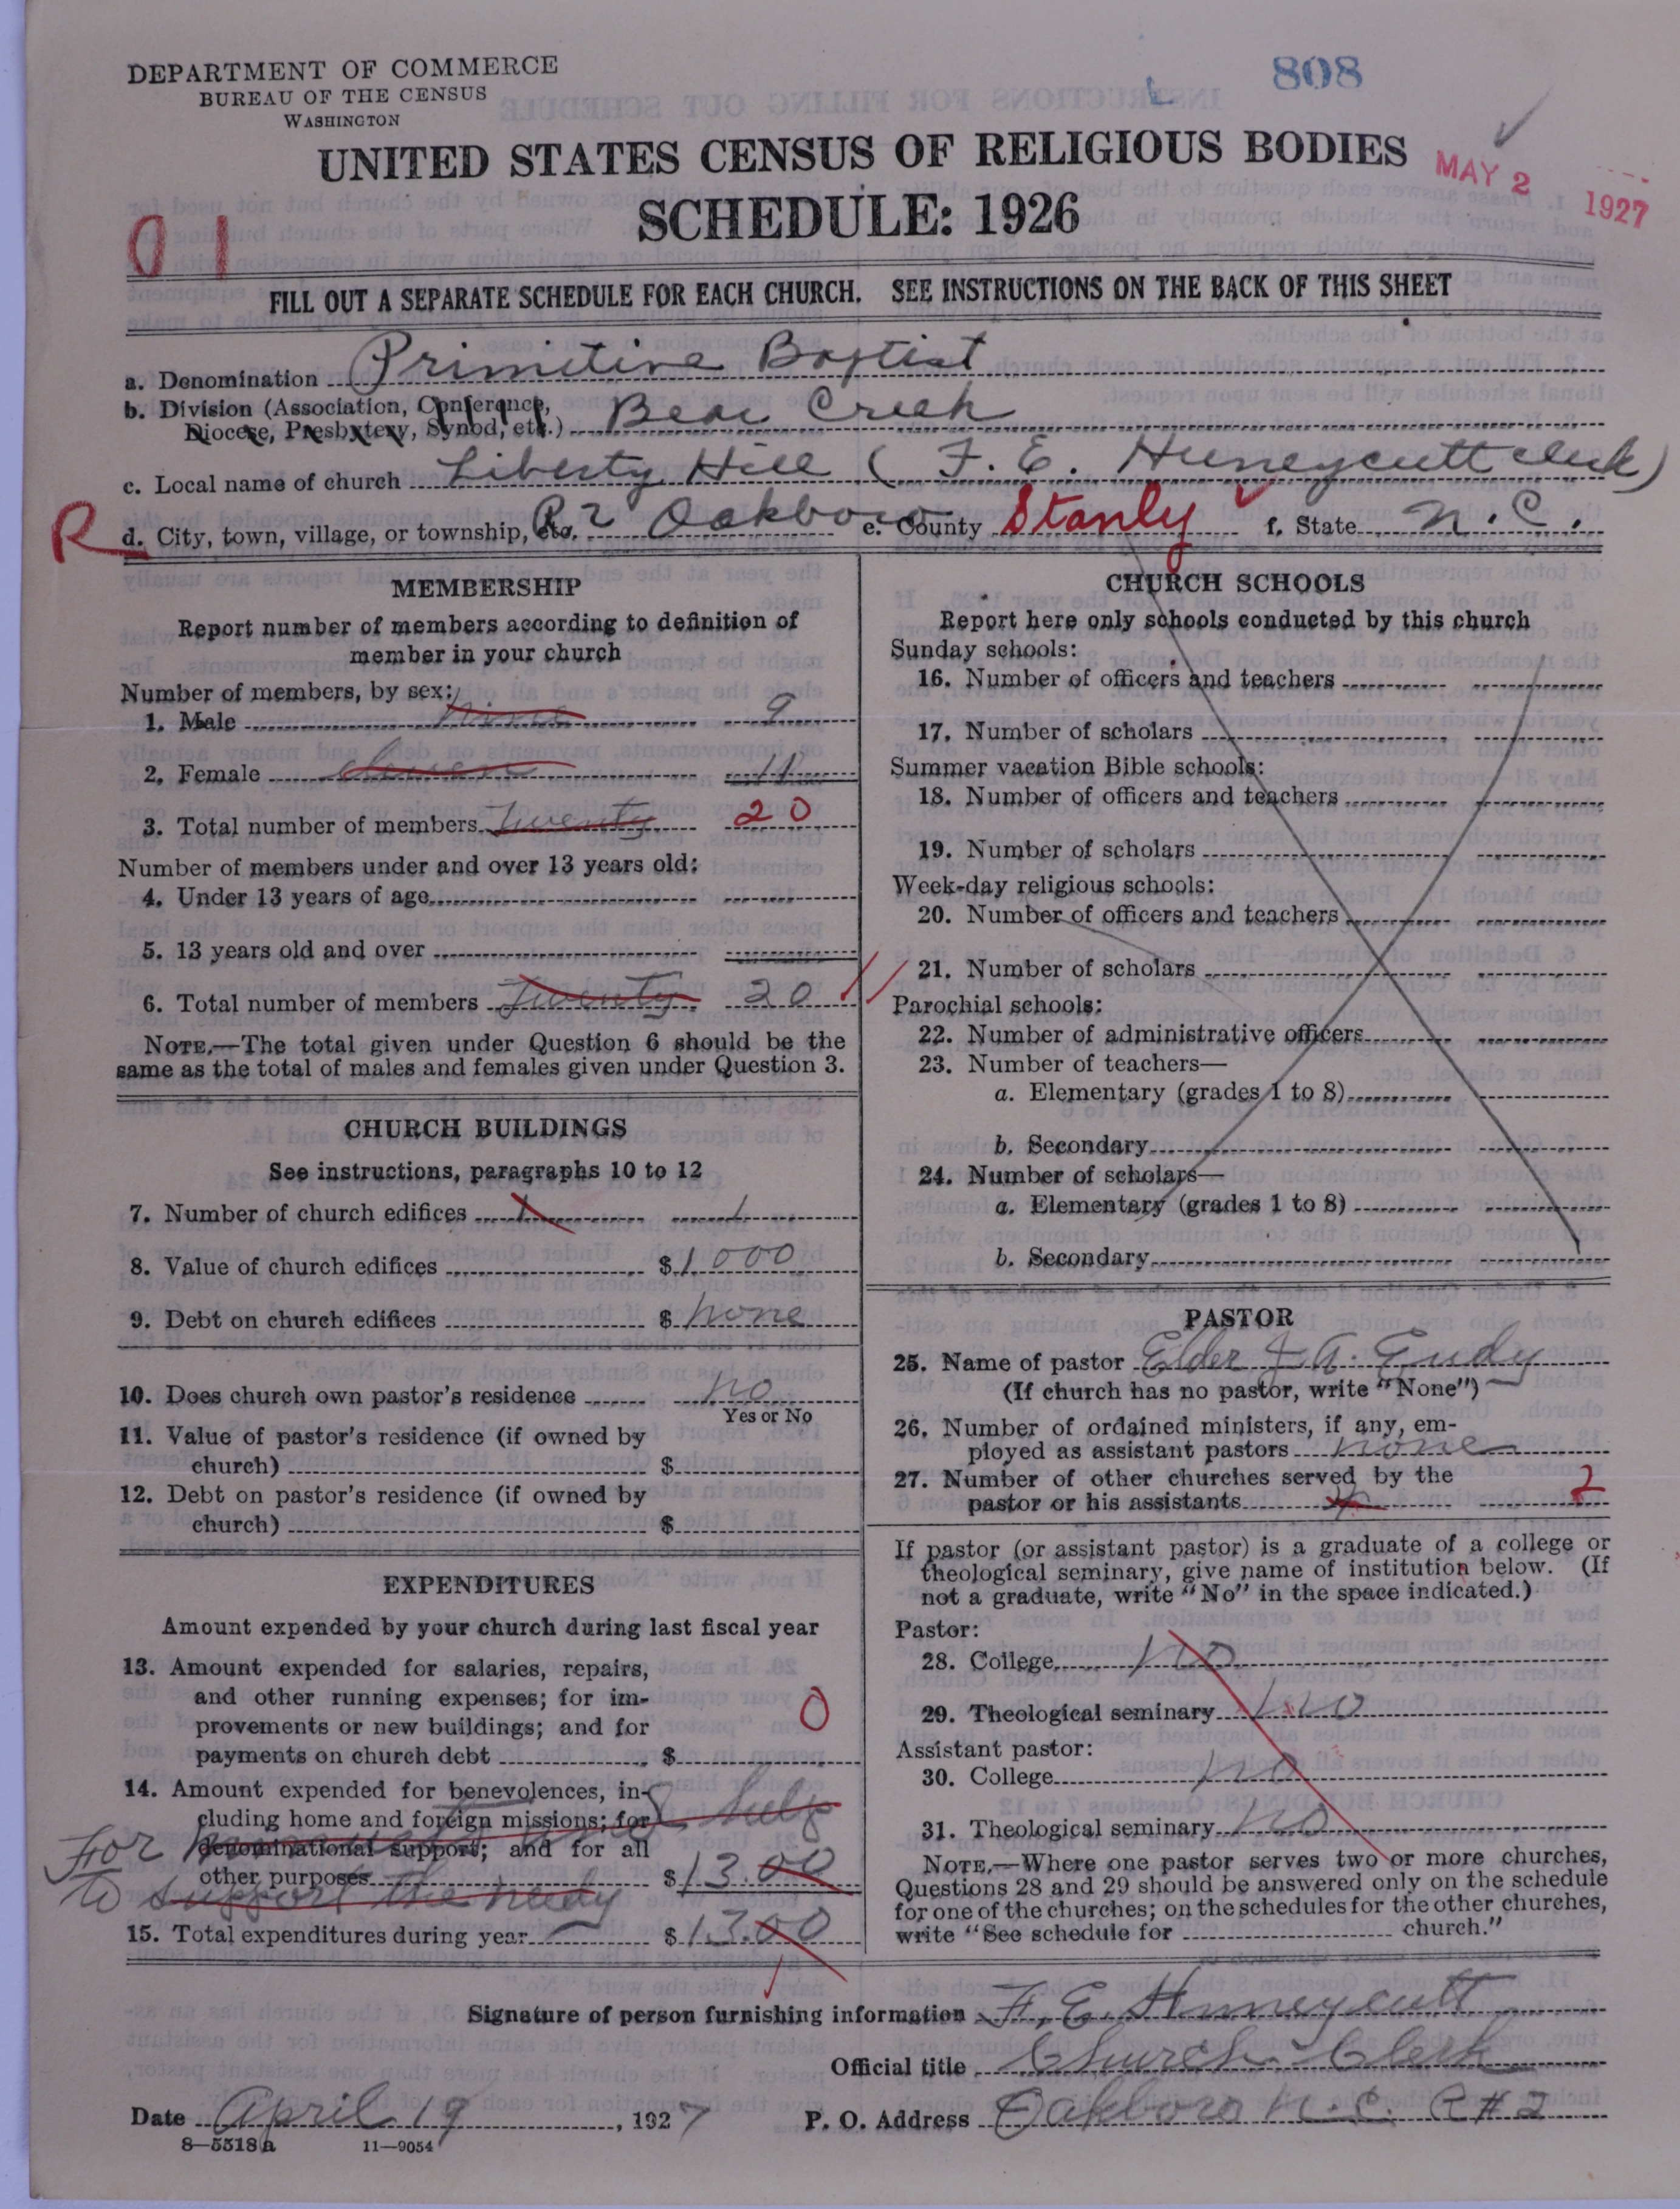 DEPARTMENT OF COMMERCE
BUREAU OF THE CENSUS
WASHINGTON
808
UNITED STATES CENSUS OF RELIGIOUS BODIES
SCHEDULE: 1926
MAY 2 1927
01
FILL OUT A SEPARATE SCHEDULE FOR EACH CHURCH. SEE INSTRUCTIONS ON THE BACK OF THIS SHEET
a. Denomination Primitive Baptist
b. Division (Association, Conference,
Diocese, Presbytery, Synod, etc.) Bear Creek
c. Local name of church Liberty Hill (F. E. Huneycutt clerk)
R d. City, town, village, or township, etc. R 2 Oakboro e. County Stanly f. State N. C.
MEMBERSHIP
Report number of members according to definition of
member in your church
Number of members, by sex:
1. Male nine 9
2. Female eleven 11
3. Total number of members Twenty 20
Number of members under and over 13 years old:
4. Under 13 years of age
5. 13 years old and over
6. Total number of members Twenty 20
NOTE.—The total given under Question 6 should be the
same as the total of males and females given under Question 3.
CHURCH BUILDINGS
See instructions, paragraphs 10 to 12
7. Number of church edifices 1 1
8. Value of church edifices $1000
9. Debt on church edifices $ none
10. Does church own pastor's residence no
Yes or No
11. Value of pastor's residence (if owned by
church) $
12. Debt on pastor's residence (if owned by
church) $
EXPENDITURES
Amount expended by your church during last fiscal year
13. Amount expended for salaries, repairs,
and other running expenses; for im-
provements or new buildings; and for 0
payments on church debt $
14. Amount expended for benevolences, in-
cluding home and foreign missions; for help
For denominational support; and for all
other purposes $13.00
to support the needy
15. Total expenditures during year $13.00
CHURCH SCHOOLS
Report here only schools conducted by this church
Sunday schools:
16. Number of officers and teachers
17. Number of scholars
Summer vacation Bible schools:
18. Number of officers and teachers
19. Number of scholars
Week-day religious schools:
20. Number of officers and teachers
21. Number of scholars
Parochial schools:
22. Number of administrative officers
23. Number of teachers—
a. Elementary (grades 1 to 8)
b. Secondary
24. Number of scholars—
a. Elementary (grades 1 to 8)
b. Secondary
PASTOR
25. Name of pastor Elder J. A. Eudy
(If church has no pastor, write "None")
26. Number of ordained ministers, if any, em-
ployed as assistant pastors none
27. Number of other churches served by the
pastor or his assistants 2
If pastor (or assistant pastor) is a graduate of a college or
theological seminary, give name of institution below. (If
not a graduate, write "No" in the space indicated.)
Pastor:
28. College no
29. Theological seminary no
Assistant pastor:
30. College no
31. Theological seminary no
NOTE.—Where one pastor serves two or more churches,
Questions 28 and 29 should be answered only on the schedule
for one of the churches; on the schedules for the other churches,
write "See schedule for church."
Signature of person furnishing information F. E. Huneycutt
Official title Church Clerk
Date April 19, 1927 P. O. Address Oakboro N. C. R #2
8—5518 a 11—9054